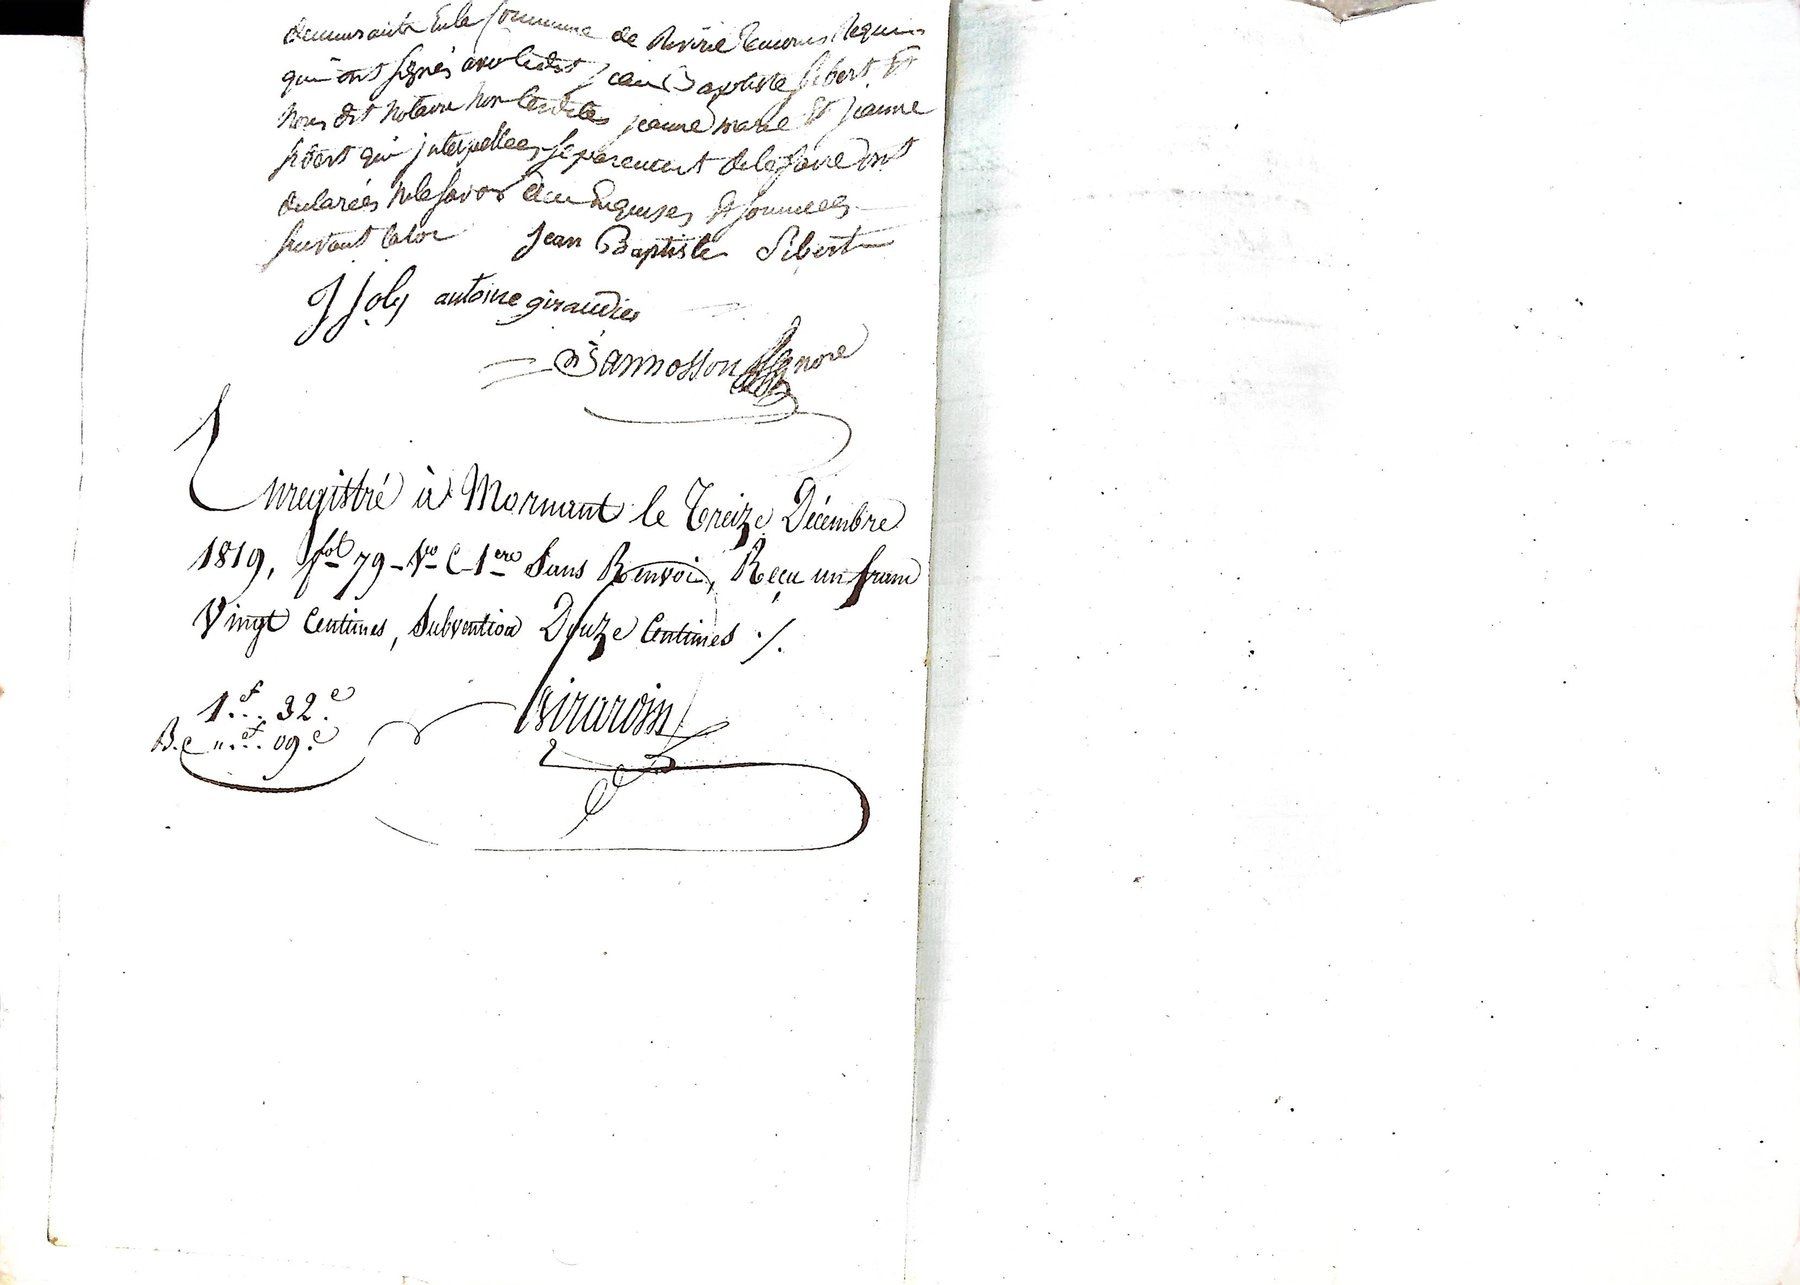 demeurants en la Commune de Riverie temoins Requis
qui ont signés avec ledit jean Baptiste sibert Et
Nous dit notaire Non lesdites jeanne marie Et jeanne
sibert qui interpellées separement de le faire ont
declarées Ne le savoir de ce Enquises Et sommées
suivant la loi Jean Baptiste Sibert
J Joly antoine giraudier
Bannosson
Enregistré à Mornant le Treize Décembre
1819, fol 79 Vo C 1ere Sans Renvoi, Reçu un franc
Vingt Centimes, Subvention Douze Centimes ./.
1.f.. 32.c
Girardin
B.c ".f.. 09.c